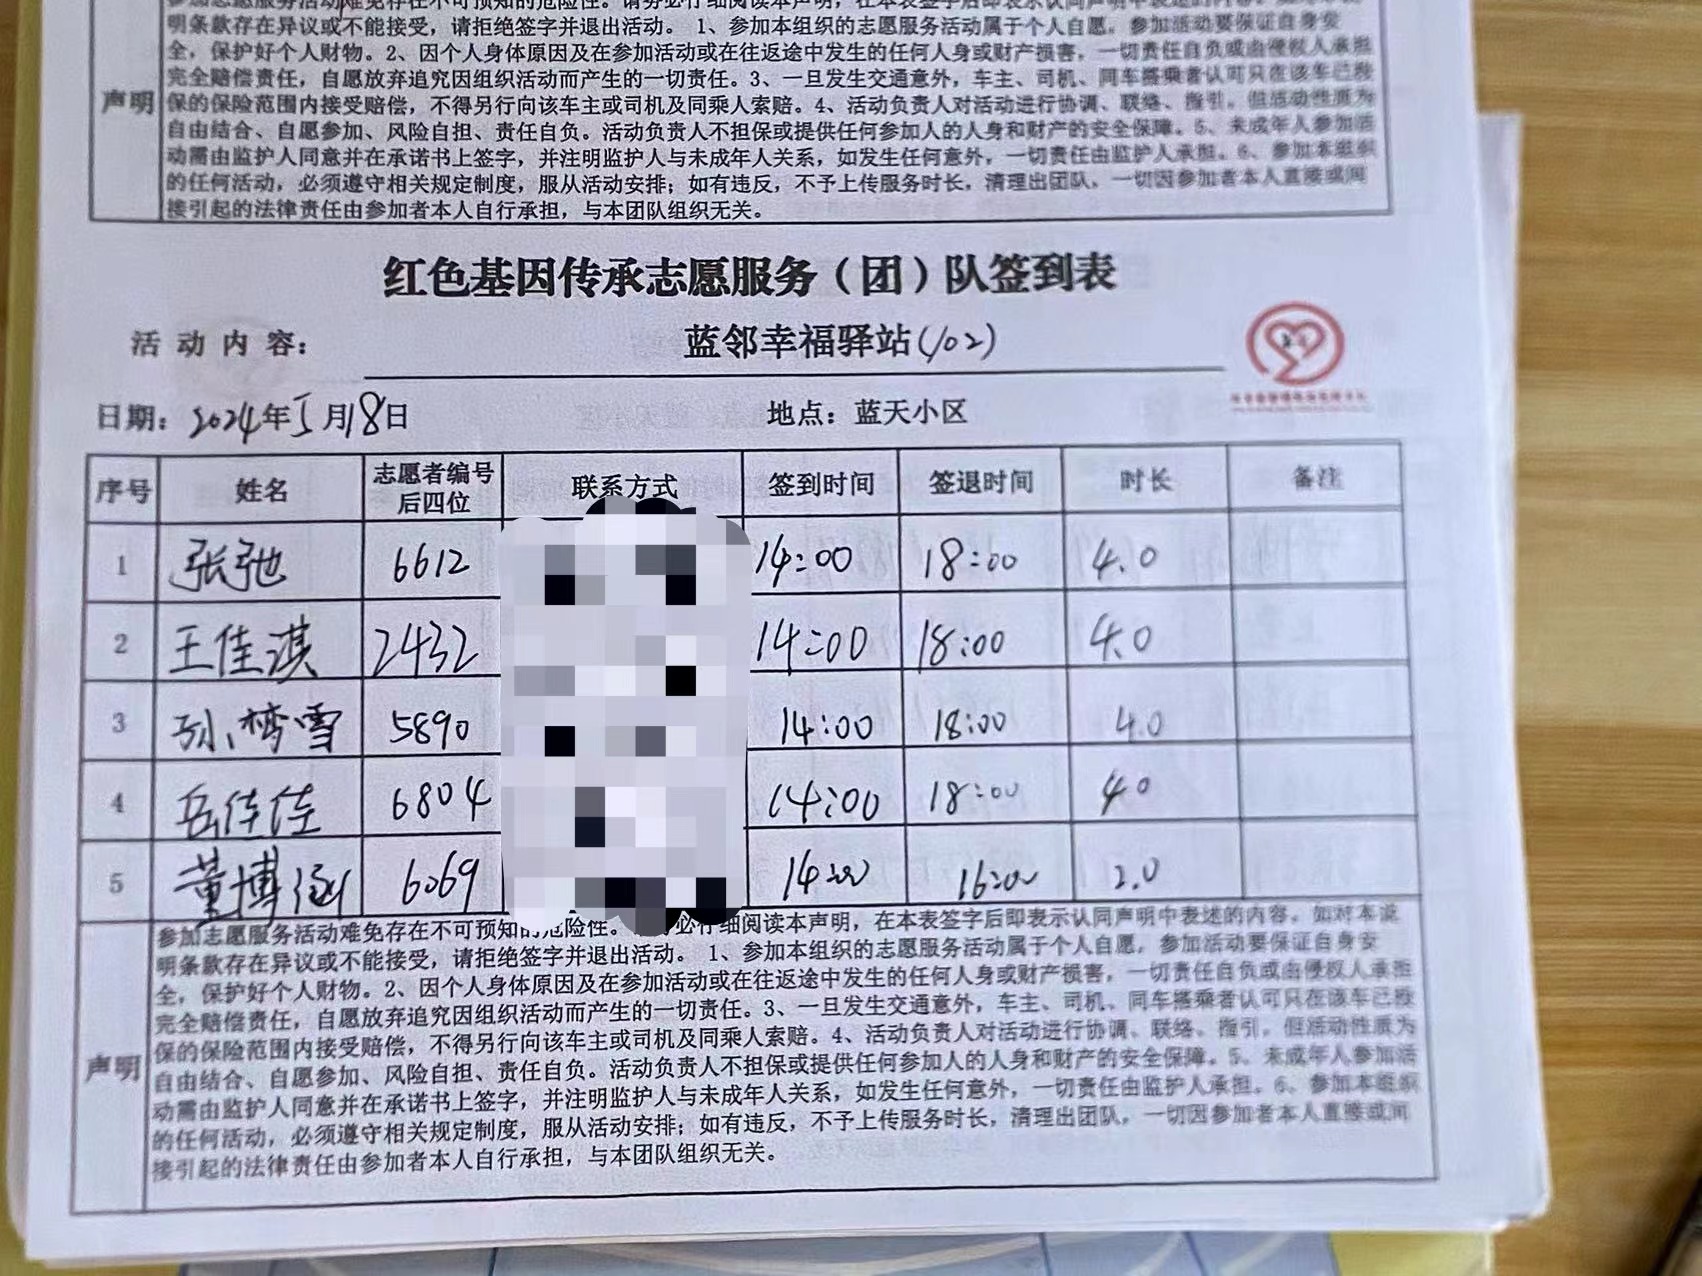 明条款存在异议或不能接受，请拒绝签字并退出活动。 1、参加本组织的志愿服务活动属于个人自愿，参加活动要保证自身安
全，保护好个人财物。2、因个人身体原因及在参加活动或在往返途中发生的任何人身或财产损害，一切责任自负或由侵权人承担
完全赔偿责任，自愿放弃追究因组织活动而产生的一切责任。3、一旦发生交通意外，车主、司机、同车搭乘者认可只在该车已投
声明
保的保险范围内接受赔偿，不得另行向该车主或司机及同乘人索赔。4、活动负责人对活动进行协调、联络、指引，但活动性质为
自由结合、自愿参加、风险自担、责任自负。活动负责人不担保或提供任何参加人的人身和财产的安全保障。5、未成年人参加活
动需由监护人同意并在承诺书上签字，并注明监护人与未成年人关系，如发生任何意外，一切责任由监护人承担。6、参加本组织
的任何活动，必须遵守相关规定制度，服从活动安排；如有违反，不予上传服务时长，清理出团队，一切因参加者本人直接或间
接引起的法律责任由参加者本人自行承担，与本团队组织无关。
红色基因传承志愿服务（团）队签到表
活动内容： 蓝邻幸福驿站(102)
日期：2024年5月18日 地点：蓝天小区
序号 姓名 志愿者编号后四位 联系方式 签到时间 签退时间 时长 备注
1 张弛 6612 14:00 18:00 4.0
2 王佳淇 2432 14:00 18:00 4.0
3 孙梦雪 5890 14:00 18:00 4.0
4 岳佳佳 6804 14:00 18:00 4.0
5 董博涵 6069 14:00 16:00 2.0
参加志愿服务活动难免存在不可预知的危险性。 务必仔细阅读本声明，在本表签字后即表示认同声明中表述的内容。如对本说
明条款存在异议或不能接受，请拒绝签字并退出活动。 1、参加本组织的志愿服务活动属于个人自愿，参加活动要保证自身安
全，保护好个人财物。2、因个人身体原因及在参加活动或在往返途中发生的任何人身或财产损害，一切责任自负或由侵权人承担
完全赔偿责任，自愿放弃追究因组织活动而产生的一切责任。3、一旦发生交通意外，车主、司机、同车搭乘者认可只在该车已投
保的保险范围内接受赔偿，不得另行向该车主或司机及同乘人索赔。4、活动负责人对活动进行协调、联络、指引，但活动性质为
声明
自由结合、自愿参加、风险自担、责任自负。活动负责人不担保或提供任何参加人的人身和财产的安全保障。5、未成年人参加活
动需由监护人同意并在承诺书上签字，并注明监护人与未成年人关系，如发生任何意外，一切责任由监护人承担。6、参加本组织
的任何活动，必须遵守相关规定制度，服从活动安排；如有违反，不予上传服务时长，清理出团队，一切因参加者本人直接或间
接引起的法律责任由参加者本人自行承担，与本团队组织无关。